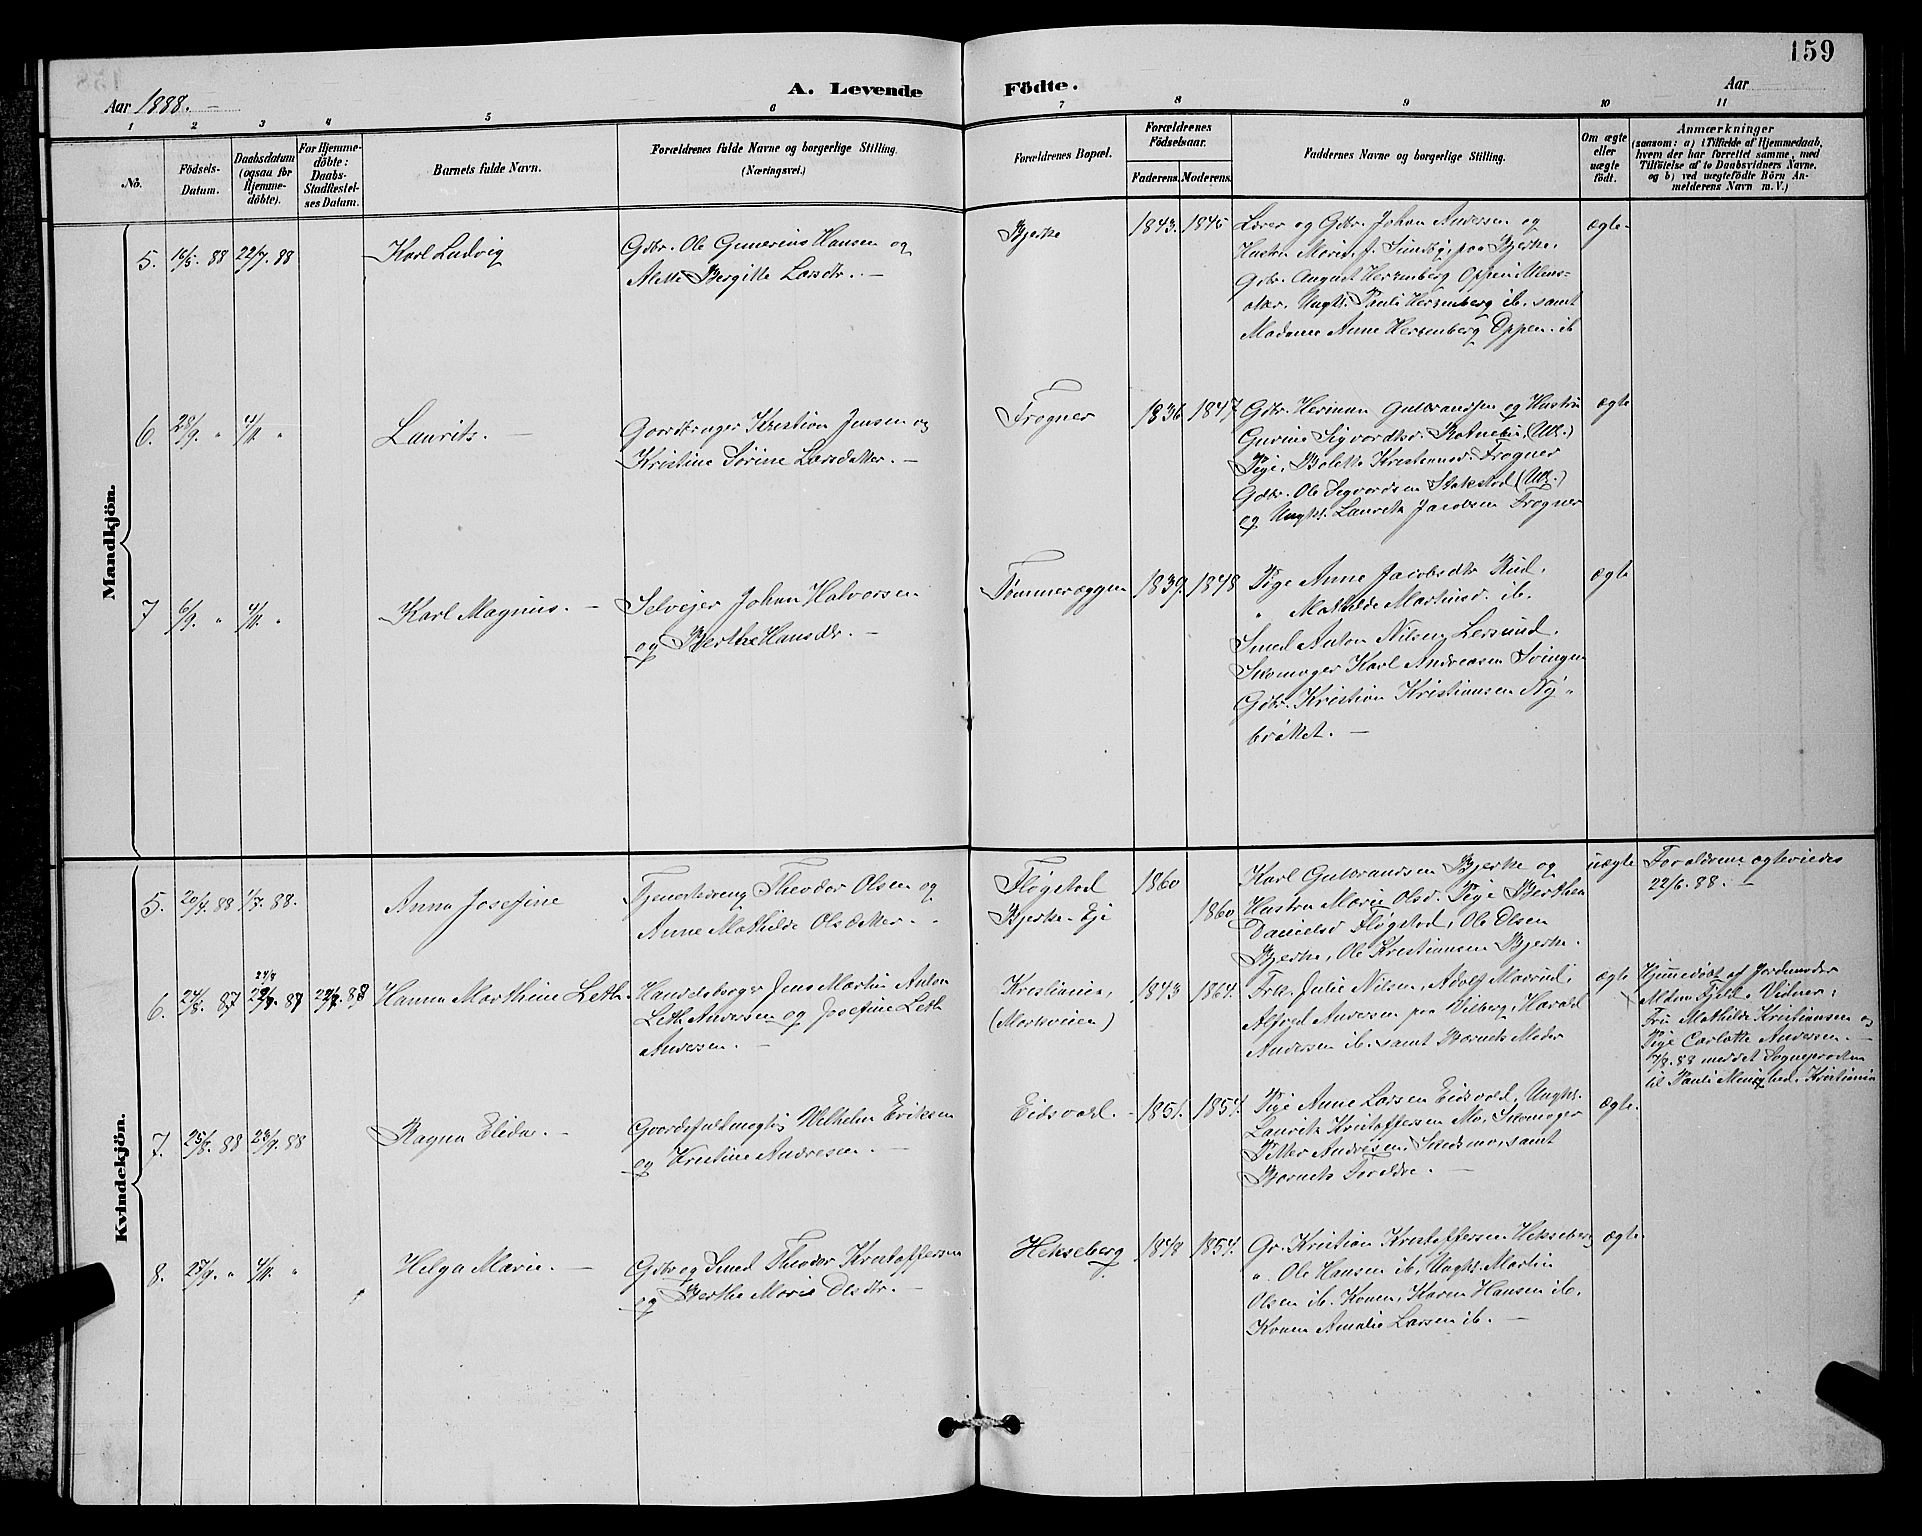 159
Aar 1888. A. Levende Födte. Aar
1 2 3 4 5 6 7 8 9 10 11
No.
Födsels-
Datum.
Daabsdatum
(ogsaa för
Hjemme-
döbte).
For Hjemme-
döbte:
Daabs-
Stadfæstel-
ses Datum.
Barnets fulde Navn.
Forældrenes fulde Navne og borgerlige Stilling.
(Næringsvei.)
Forældrenes Bopæl.
Forældrenes
Födselsaar.
Faderens. Moderens.
Faddernes Navne og borgerlige Stilling.
Om ægte
eller
uægte
födt.
Anmærkninger
(saasom: a) i Tilfælde af Hjemmedaab,
hvem der har forrettet samme, med
Tilföielse af to Daabsvidners Navne.
og b) ved uægtefödte Börn An-
melderens Navn m. V.)
Mandkjön.
5. 16/5. 88 22/7. 88 Karl Ludvig
Gdbr. Ole Gunerius Hansen og
Mette Bergitte Larsdtr. —
Bjerke 1843. 1845
Lærer og Gdbr. Johan Andersen og
Hustru Marie, f. Sundby, paa Bjerke,
Gdbr. August Herzenberg Oppen
Ungk. Pauli Herzenberg ib. samt
Madame Anne Herzenberg Oppen. ib
ægte.
6. 28/9. " 4/11. " Laurits. —
Gaardbruger Kristian Jensen og
Kristine Sørine Larsdatter. —
Frogner 1836 1847
Gdbr. Herman Gulbrandsen og Hustru
Gurine Sigvardtsd. (Ull.)
Pige, Bolette Kristiansd. Frogner
Gdbr. Ole Sigvardsen (Ull.)
og Ungk. Laurits Jacobsen Frogner
ægte
7 6/9. " 4/11. " Karl Magnus. —
Selveier Johan Halvorsen
og Berthe Hansdtr. —
Tømmeræggen 1839. 1848
Pige Anne Jacobsdtr Rud.
" Mathilde Martinsd. ib.
Smed Anton Nilsen, Lersund.
Skomager Karl Andreasen Svingen
Gdbr. Kristian Kristiansen Ny-
bråttet. —
ægte
Kvindekjön.
5. 20/4. 88 1/7. 88. Anna Josefine
Tjenestedreng Theodor Olsen og
Anne Mathilde Olsdatter. -
Fløgstad
Bjerke-Eje
1860
1860
Karl Gulbrandsen Bjerke og
Hustru Marie Olsd. Pige Berthea
Danielsd Fløgstad, Ole Olsen
Bjerke, Ole Kristiansen Bjerke.
uægte
Forældrene ægteviedes
22/6. 88. —
6. 24/8. 87 Hanna Marthine Leth.
Handelsborger Jens Martin Anton
Leth Andersen og Josefine Leth
Andersen. —
Kristiania,
(Markveien)
1843 1864.
Frk. Julie Nilsen, Adolf Maurud,
Alfred Andersen paa Vilberg, Harald
Andersen ib. samt Barnets Moder
ægte
Hjemmedöbt af Jordmoder
Fjeld. Vidner:
Fru Mathilde Kristiansen og
Pige Carlotte Andersen. —
7/9. 88 meddelt Sognepresten
til Pauli Menighed, Kristiania
7. 25/8. 88 23/9. 88 Ragna Elida. —
Gaardsfuldmægtig Wilhelm Eriksen
og Kristine Andresen. —
Eidsvold. 1851. 1854.
Pige Anne Larsen Eidsvold, Ungk.
Laurits Kristoffersen Mo, Skomager
Petter Andresen, Smedsmo, samt
Barnets Forældre. —
ægte.
8. 27/9. " 4/11. " Helga Marie. —
Gdbr og Smed Theodor Kristoffersen
og Berthe Marie Olsdtr. —
Hekseberg 1848 1854.
Gr. Kristian Kristoffersen Hekseberg
". Ole Hansen ib, Ungk. Martin
Olsen ib. Konen, Karen Hansen ib,
Konen Amalie Larsen ib. —
ægte.